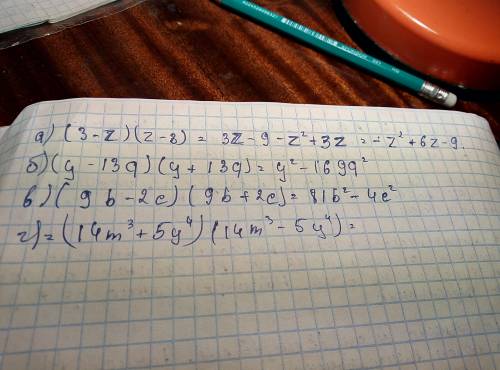 а) (3-z)(z-3) = 3z-9-z²+3z = -z²+6z-9.
б) (y-13q)(y+13q) = y²-169q²
в) (9b-2c)(9b+2c) = 81b²-4c²
г) = (14m³+5y⁴)(14m³-5y⁴) =